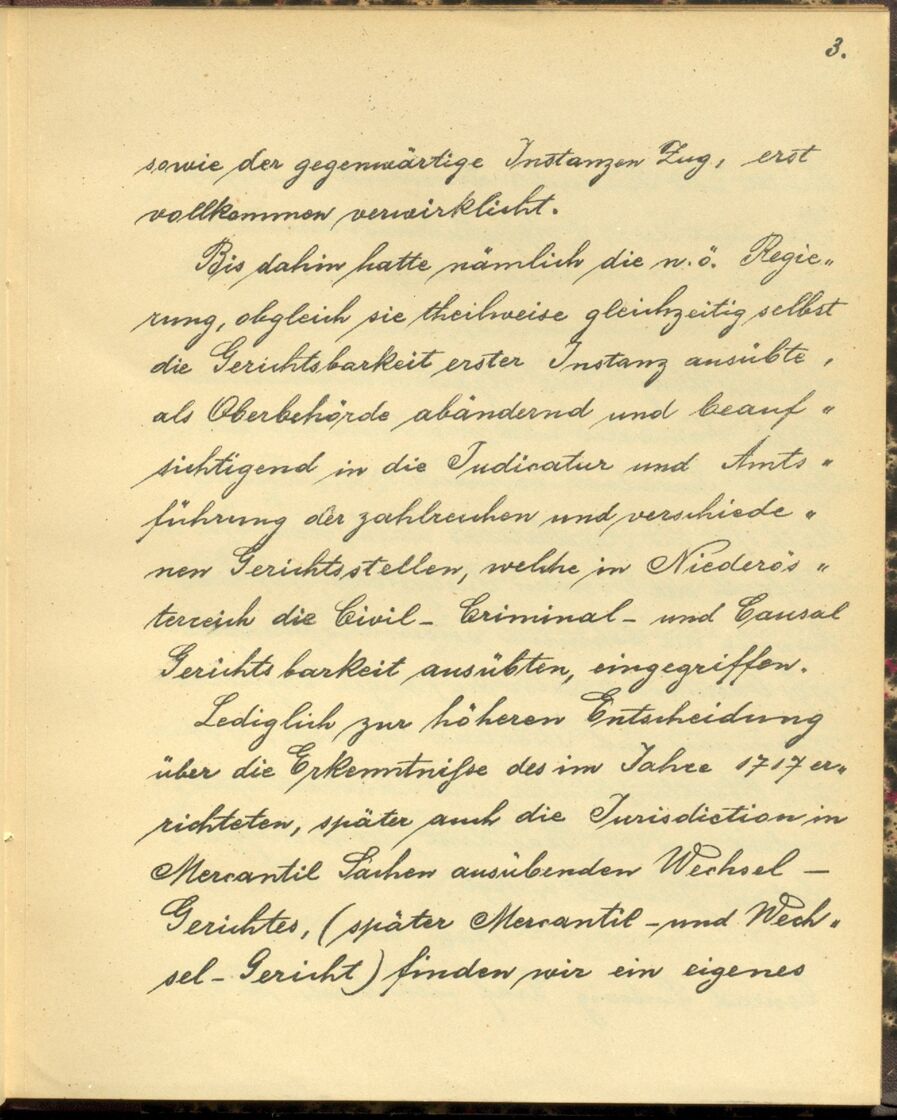 3.
sowie der gegenwärtige Instanzen Zug, erst
vollkommen verwirklicht.
Bis dahin hatte nämlich die n. ö. Regie„
rung, obgleich sie theilweise gleichzeitig selbst
die Gerichtsbarkeit erster Instanz ausübte,
als Oberbehörde abändernd und beauf„
sichtigend in die Judicatur und Amts„
führung der zahlreichen und verschiede„
nen Gerichtsstellen, welche in Niederös„
terreich die Civil- Criminal- und Causal
Gerichtsbarkeit ausübten, eingegriffen.
Lediglich zur höheren Entscheidung
über die Erkenntniſse des im Jahre 1717 er„
richteten, später auch die Jurisdiction in
Mercantil Sachen ausübenden Wechsel-
Gerichtes, (später Mercantil- und Wech„
sel-Gericht) finden wir ein eigenes